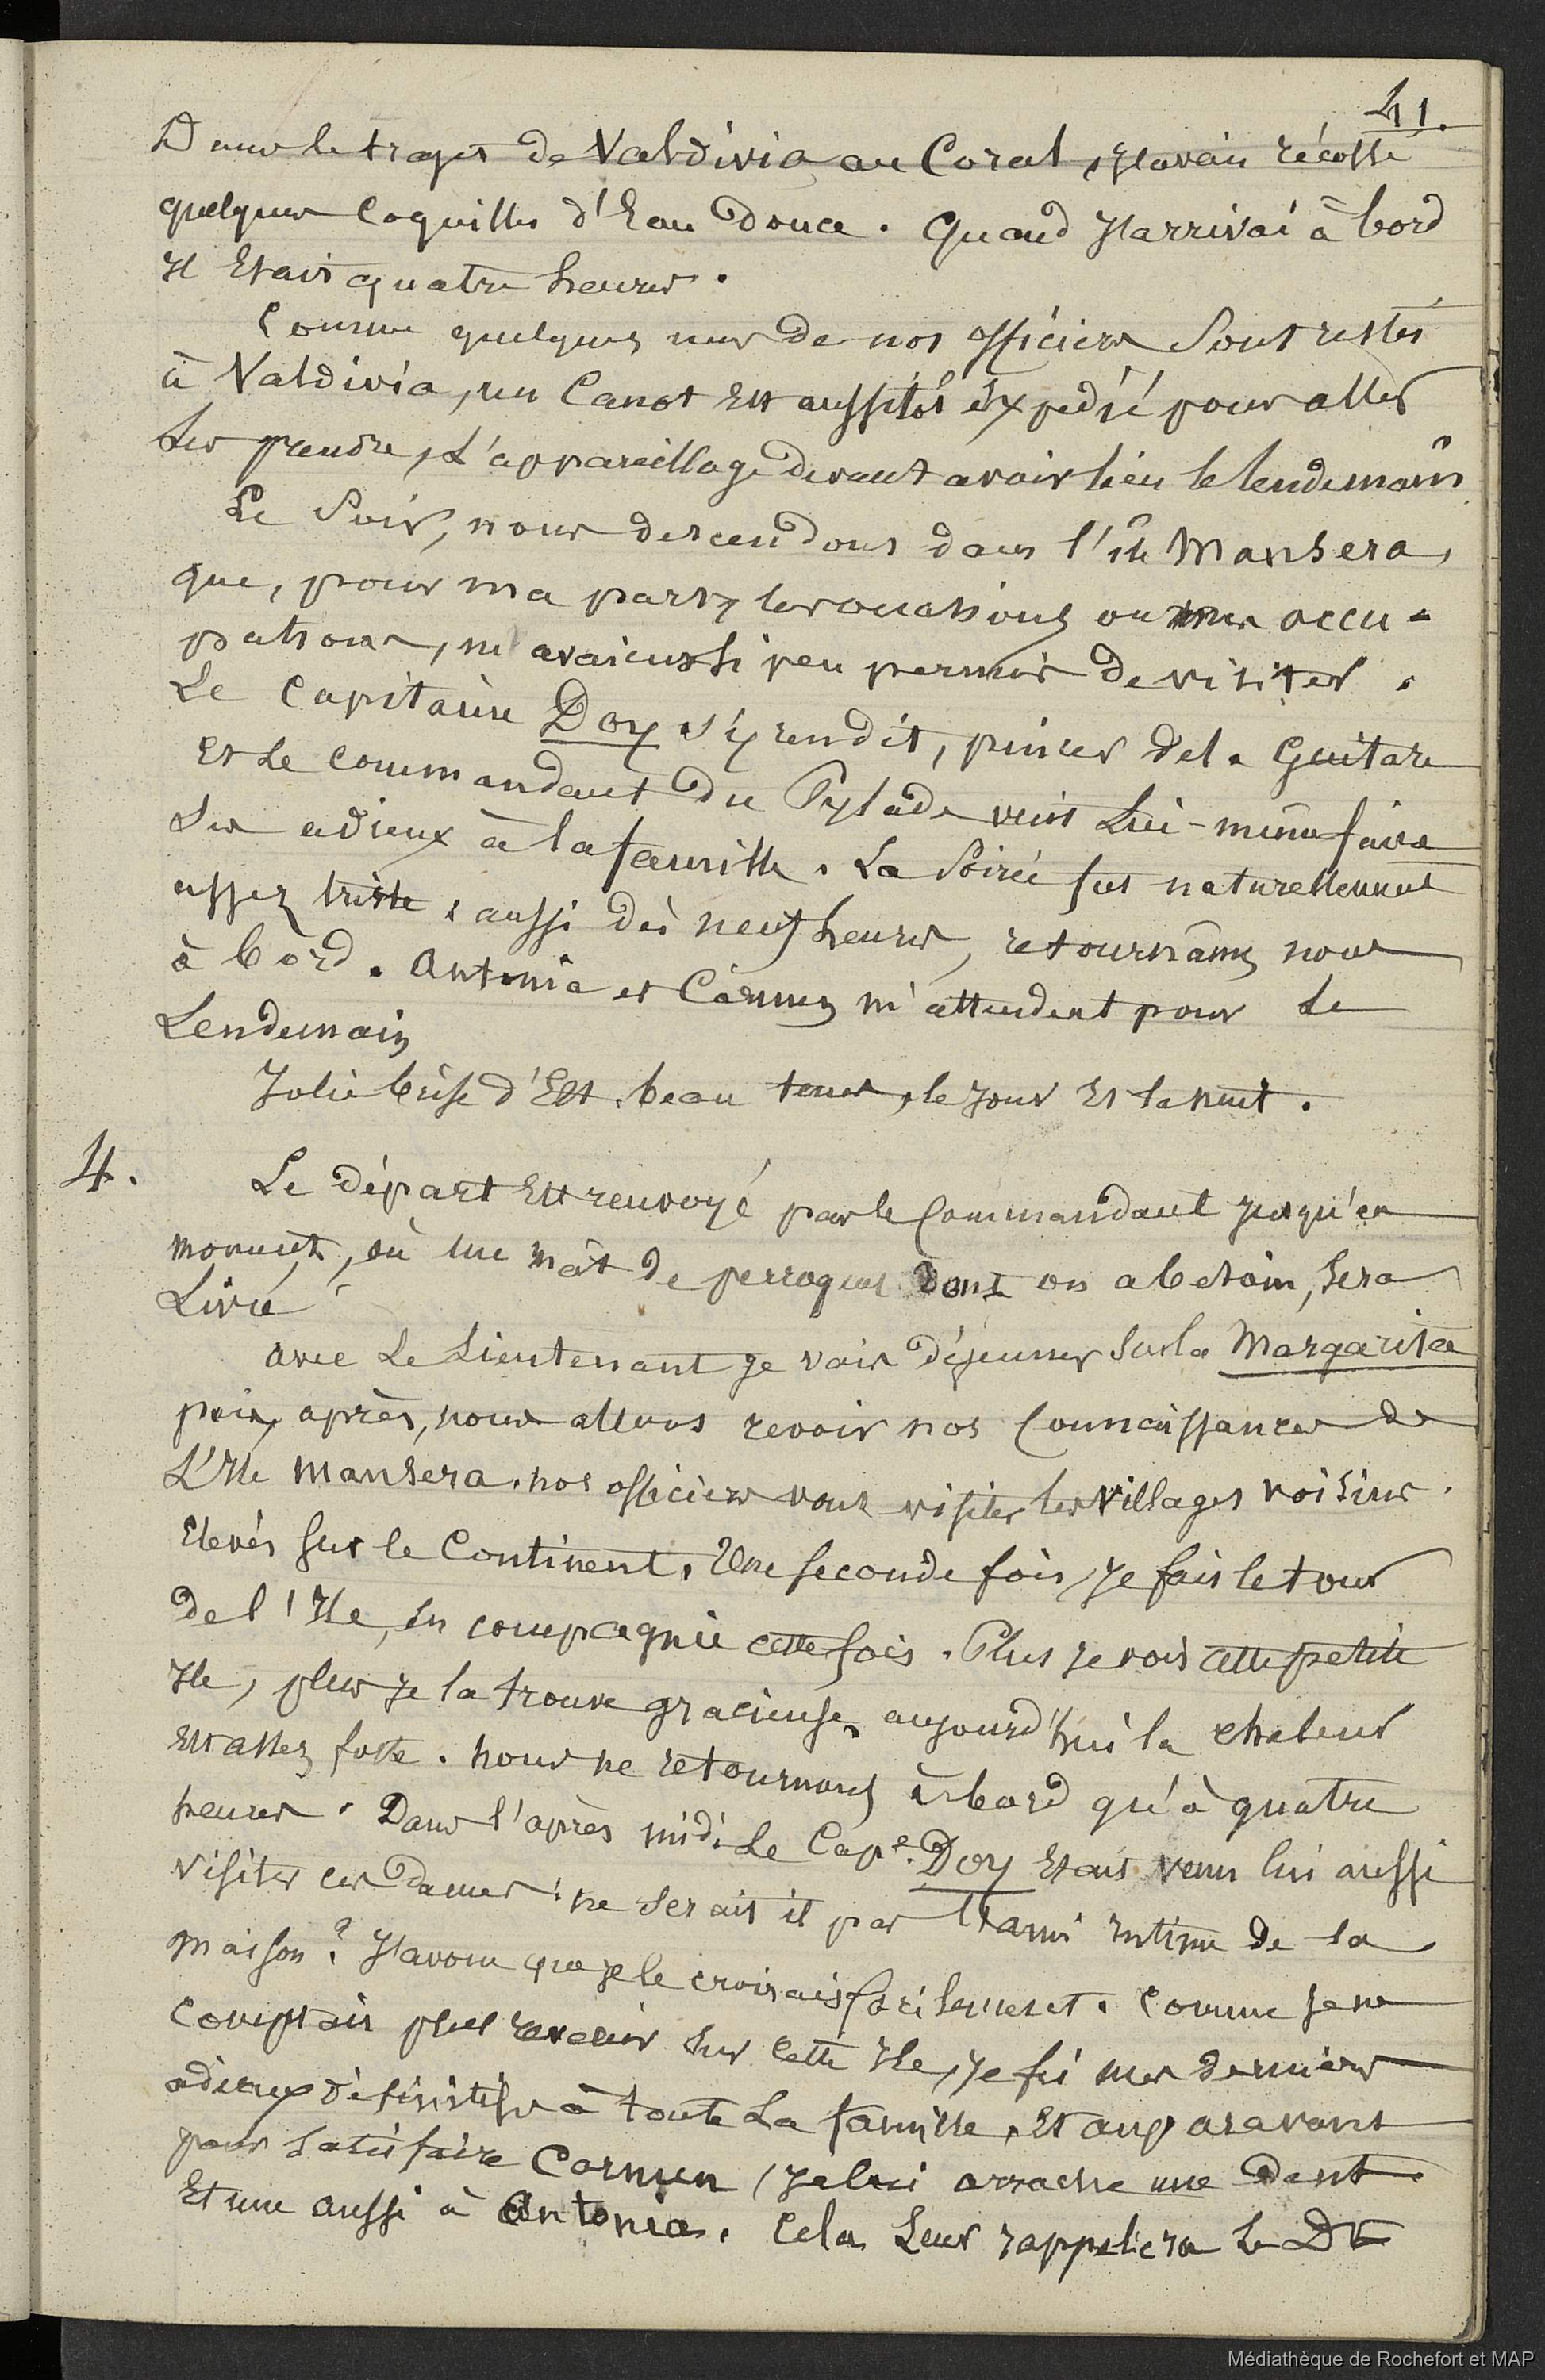 41.
Dans le trajet de Valdivia au Coral, j'avais récolté
quelques Coquilles d'Eau Douce. Quand J'arrivai à bord
Il Etait quatre heures.
Comme quelques uns de nos officiers Sont restés
à Valdivia, un Canot Est aussitôt éxpédié pour aller
Les prendre, L'appareillage devant avoir lieu le lendemain
Le Soir, nous descendons dans l'île Mansera,
que, pour ma part, les occasions ou mes occu-
pations, m'avaient si peu permis de visiter.
Le Capitaine Doy s'y rendit, pincer de la Guitare
Et Le Commandant Du Pylade vint Lui-même faire
Ses adieux à la famille. La Soirée fut naturellement
assez triste, aussi dès neuf heures, retournâmes nous
à bord. Antonia et Carmen m'attendent pour Le
Lendemain
Jolie brise d'Est, beau tems, le jour Et la nuit.
4. Le départ Est renvoyé par le Commandant jusqu'au
moment, où un mât de perroquet Dont on a besoin, Sera
Livré
avec Le Lieutenant je vais déjeuner Sur la Margarita
puis, après, nous allons revoir nos Connaissances de
L'Ile Mansera. nos officiers vont visiter les Villages voisins
Elevés Sur le Continent. Une Seconde fois, Je fais le tour
de l'Ile, En compagnie cette fois. Plus je vois cette petite
Ile, plus je la trouve gracieuse, aujourd'hui la chaleur
Est assez forte. nous ne retournons à bord qu'à quatre
heures. Dans l'après midi Le Cape. Doy Etait venu lui aussi
visiter ces Dames, ne Serait il pas l'ami intime de la
maison? J'avoue que je le croirais facilement. Comme je ne
comptais plus revenir Sur Cette Ile, je fis mes derniers
adieux définitifs à toute La famille, Et auparavant
pour Satisfaire Carmen, je lui arrache une Dent
Et une aussi à Antonia. Cela Leur rappelera Le Dr
Médiathèque de Rochefort et MAP